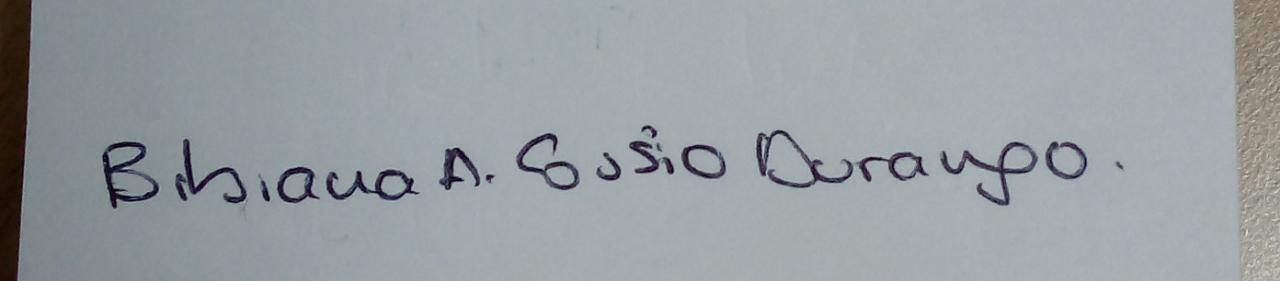 Bibiana A. Cossio Durango.